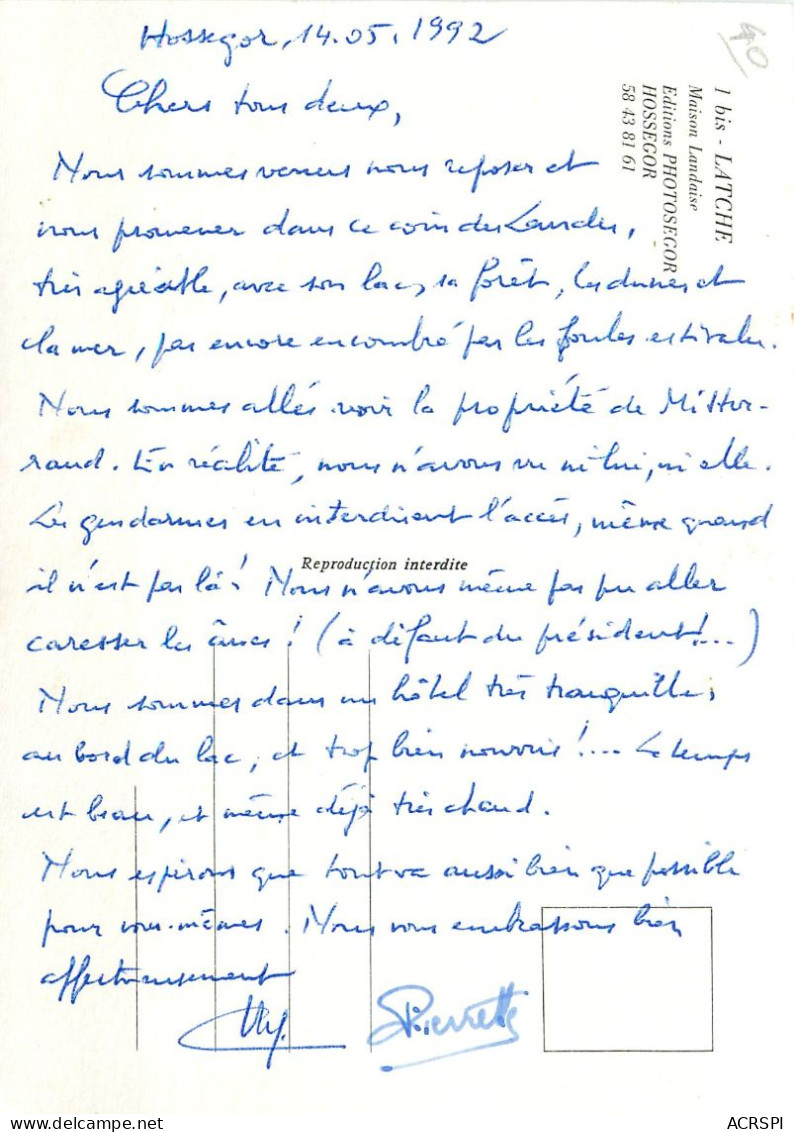 Hossegor, 14.05.1992
40
Chers tous deux,
1 bis - LATCHE
Maison Landaise
Editions PHOTOSEGOR
HOSSEGOR
58 43 81 61
Nous sommes venus nous reposer et
nous promener dans ce coin des Landes,
très agréable, avec son lac, sa forêt, les dunes et
la mer, pas encore encombré par les foules estivales.
Nous sommes allés voir la propriété de Mitter-
rand. En réalité, nous n'avons vu ni lui, ni elle.
Les gendarmes en interdisent l'accès, même quand
il n'est pas là! Nous n'avons même pas pu aller
Reproduction interdite
caresser les ânes! (à défaut du président!...)
Nous sommes dans un hôtel très tranquille,
au bord du lac, et trop bien nourris!... Le temps
est beau, et même déjà très chaud.
Nous espérons que tout va aussi bien que possible
pour vous-mêmes. Nous vous embrassons bien
affectueusement
Pierrette
ACRSPI